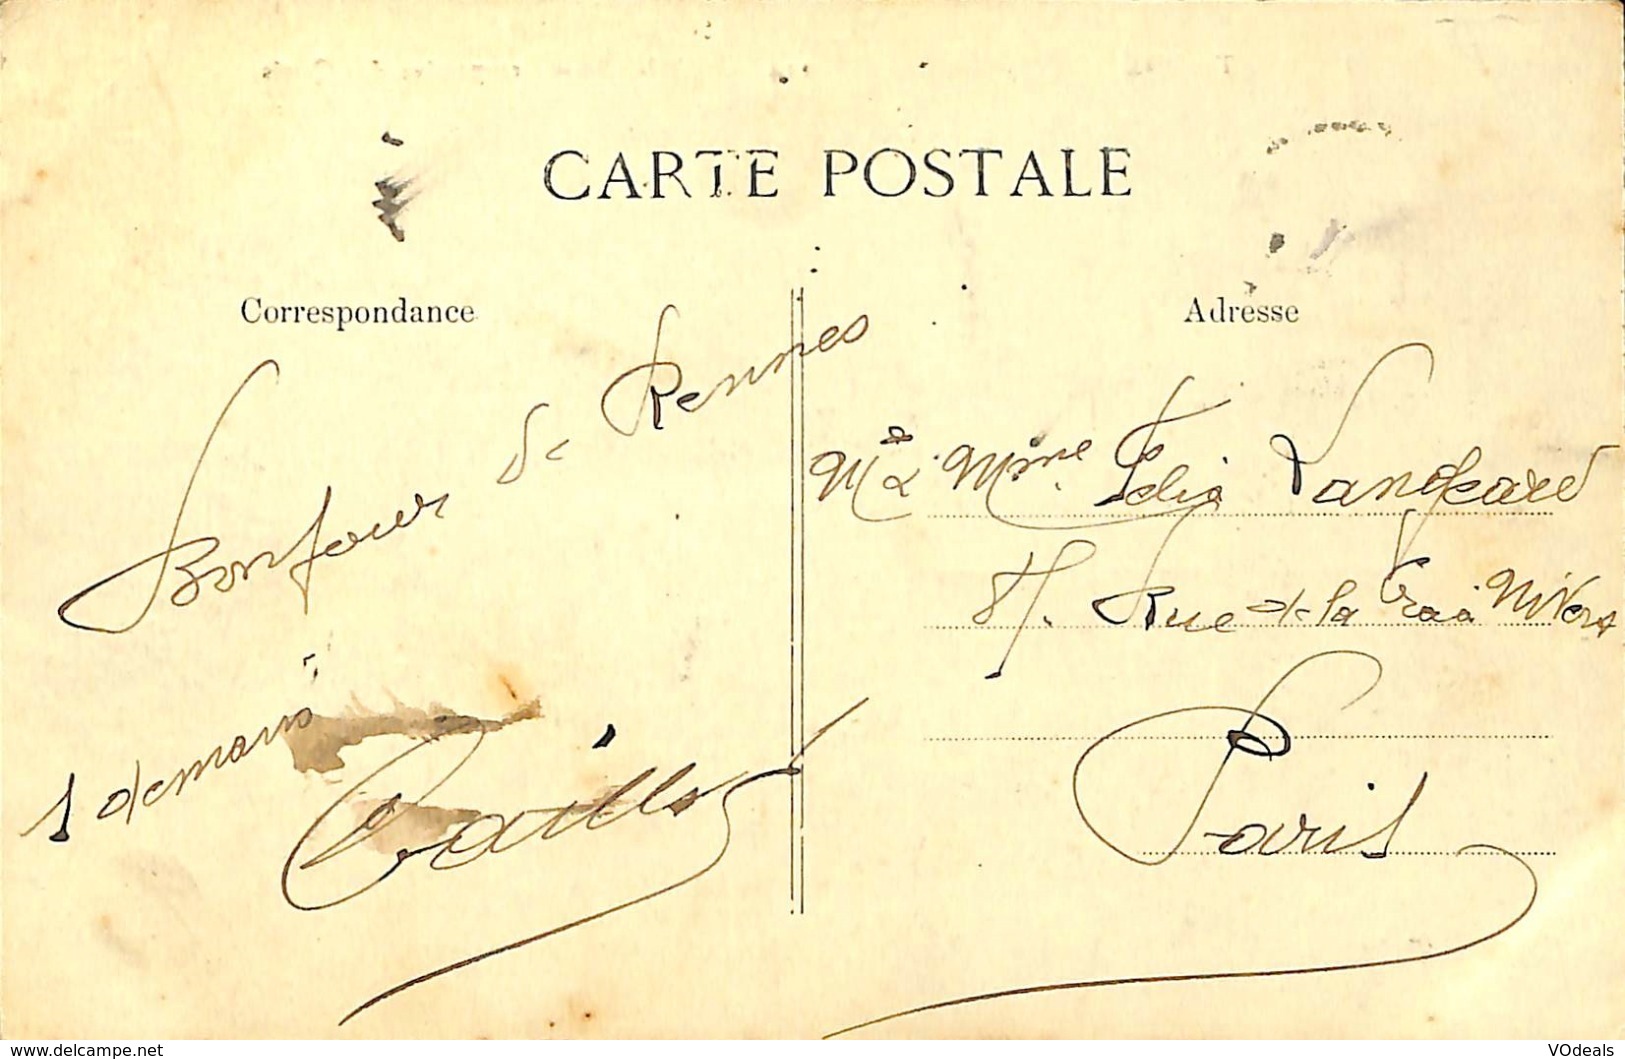 CARTE POSTALE
Correspondance
Bonjour de Rennes
Adresse
Mr & Mme Félix Langeard
Rue de la Croix Nivert
Paris
www.delcampe.net
VOdeals